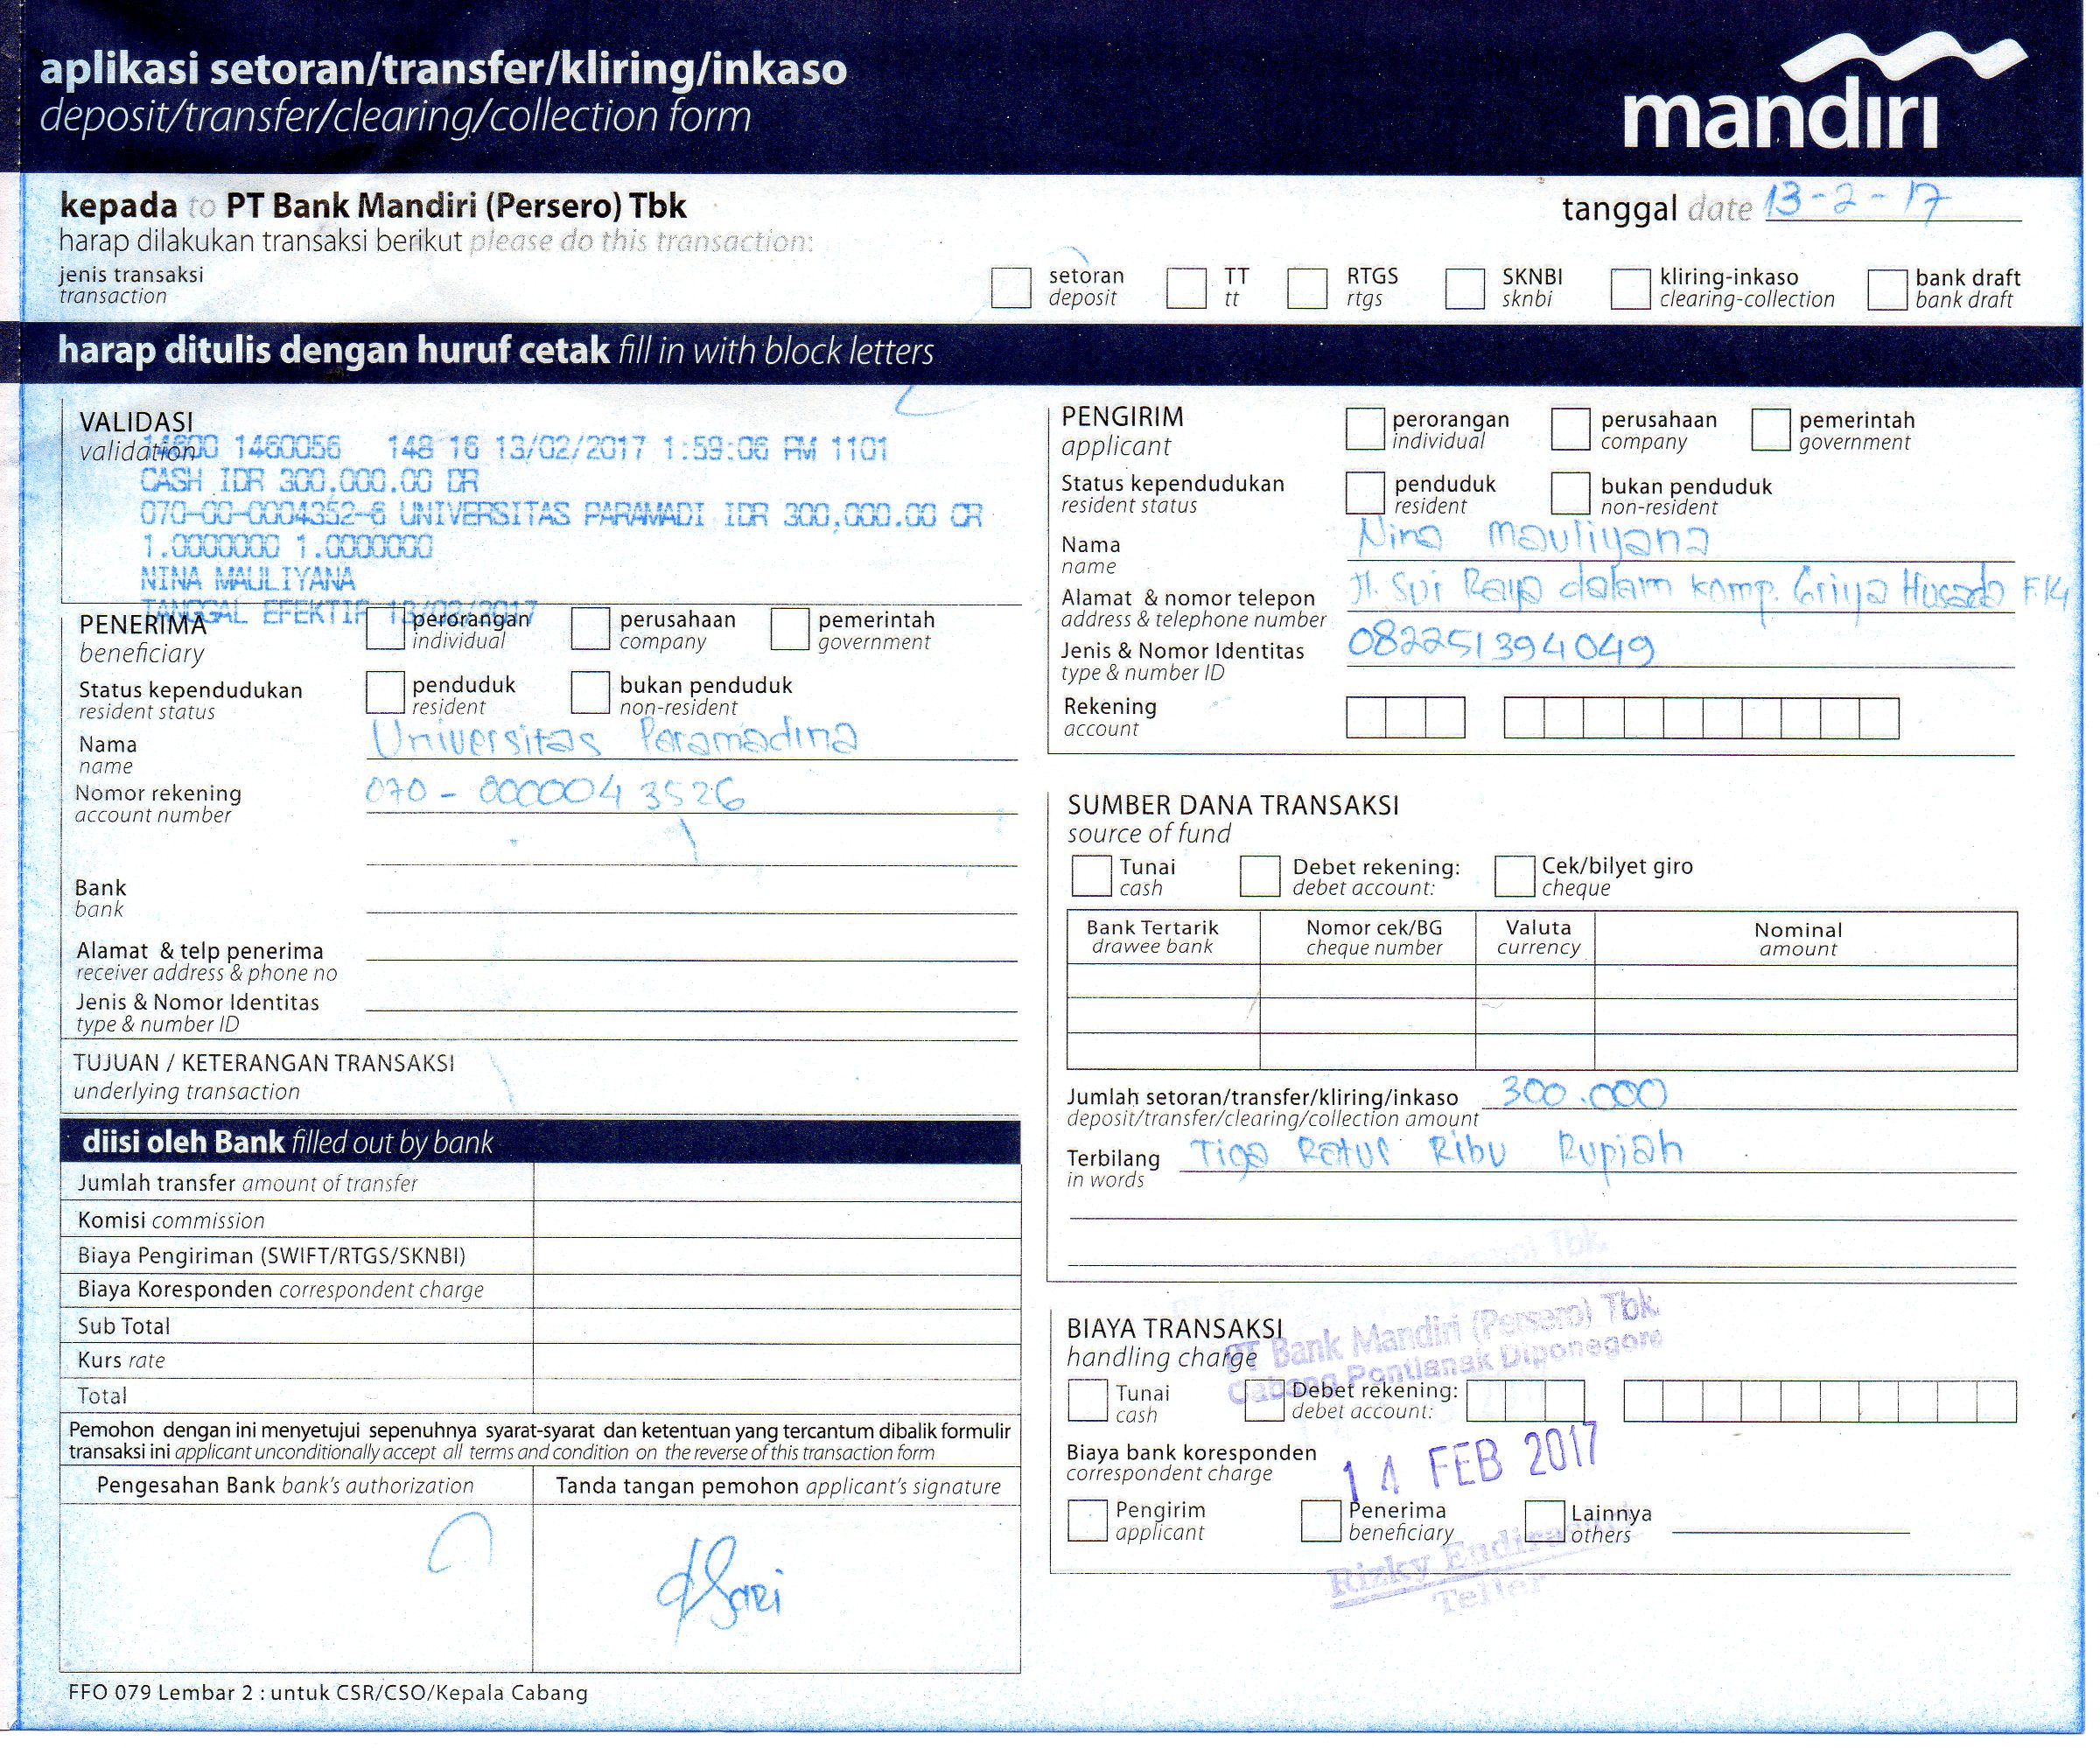 aplikasi setoran/transfer/kliring/inkaso
deposit/transfer/clearing/collection form
mandiri
kepada to PT Bank Mandiri (Persero) Tbk
harap dilakukan transaksi berikut please do this transaction:
tanggal date 13-2-17
jenis transaksi
transaction
setoran
deposit
TT
tt
RTGS
rtgs
SKNBI
sknbi
kliring-inkaso
clearing-collection
bank draft
bank draft
harap ditulis dengan huruf cetak fill in with block letters
VALIDASI
validation
14800 1460056 148 16 13/02/2017 1:59:06 PM 1101
CASH IDR 300,000.00 DR
070-00-0004352-6 UNIVERSITAS PARAMADI IDR 300,000.00 CR
1.0000000 1.0000000
NINA MAULIYANA
TANGGAL EFEKTIF 13/02/2017
PENERIMA
beneficiary
perorangan
individual
perusahaan
company
pemerintah
government
Status kependudukan
resident status
penduduk
resident
bukan penduduk
non-resident
Nama
name
Universitas Paramadina
Nomor rekening
account number
070 - 0000043526
Bank
bank
Alamat & telp penerima
receiver address & phone no
Jenis & Nomor Identitas
type & number ID
TUJUAN / KETERANGAN TRANSAKSI
underlying transaction
diisi oleh Bank filled out by bank
Jumlah transfer amount of transfer
Komisi commission
Biaya Pengiriman (SWIFT/RTGS/SKNBI)
Biaya Koresponden correspondent charge
Sub Total
Kurs rate
Total
Pemohon dengan ini menyetujui sepenuhnya syarat-syarat dan ketentuan yang tercantum dibalik formulir
transaksi ini applicant unconditionally accept all terms and condition on the reverse of this transaction form
Pengesahan Bank bank's authorization
Tanda tangan pemohon applicant's signature
FFO 079 Lembar 2 : untuk CSR/CSO/Kepala Cabang
PENGIRIM
applicant
perorangan
individual
perusahaan
company
pemerintah
government
Status kependudukan
resident status
penduduk
resident
bukan penduduk
non-resident
Nama
name
Nina Mauliyana
Alamat & nomor telepon
address & telephone number
Jl. Sui Raya dalam komp. Griya Husada F.14
Jenis & Nomor Identitas
type & number ID
082251394049
Rekening
account
SUMBER DANA TRANSAKSI
source of fund
Tunai
cash
Debet rekening:
debet account:
Cek/bilyet giro
cheque
Bank Tertarik
drawee bank
Nomor cek/BG
cheque number
Valuta
currency
Nominal
amount
Jumlah setoran/transfer/kliring/inkaso 300.000
deposit/transfer/clearing/collection amount
Terbilang Tiga Ratus Ribu Rupiah
in words
BIAYA TRANSAKSI
handling charge
PT Bank Mandiri (Persero) Tbk.
Cabang Pontianak Diponegoro
Tunai
cash
Debet rekening:
debet account:
Biaya bank koresponden
correspondent charge
14 FEB 2017
Pengirim
applicant
Penerima
beneficiary
Lainnya
others
Rizky
Teller